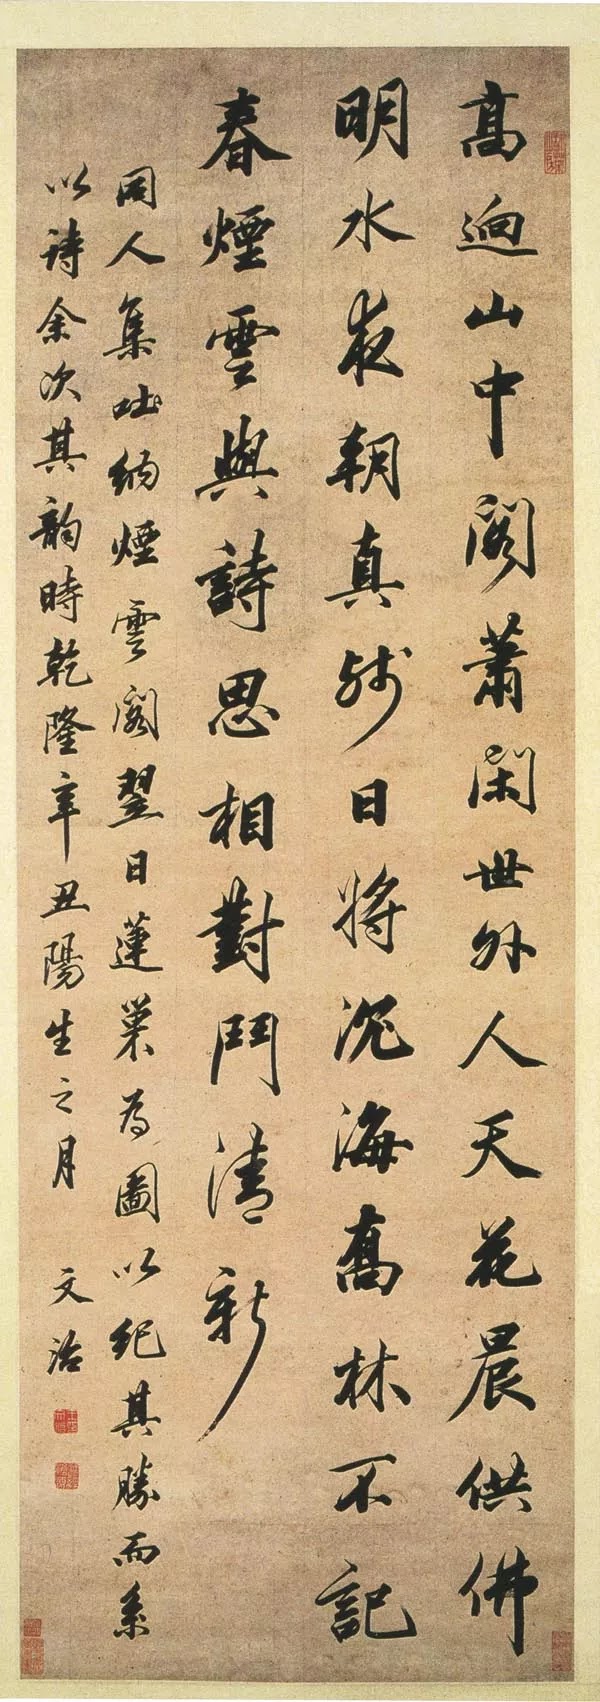 高迥山中閣蕭閑世外人天花晨供佛
明水夜朝真殘日將沉海喬林不記
春煙雲與詩思相對鬥清新
同人集吐納煙雲閣翌日蓮巢為圖以紀其勝而系
以詩余次其韻時乾隆辛丑陽生之月 文治